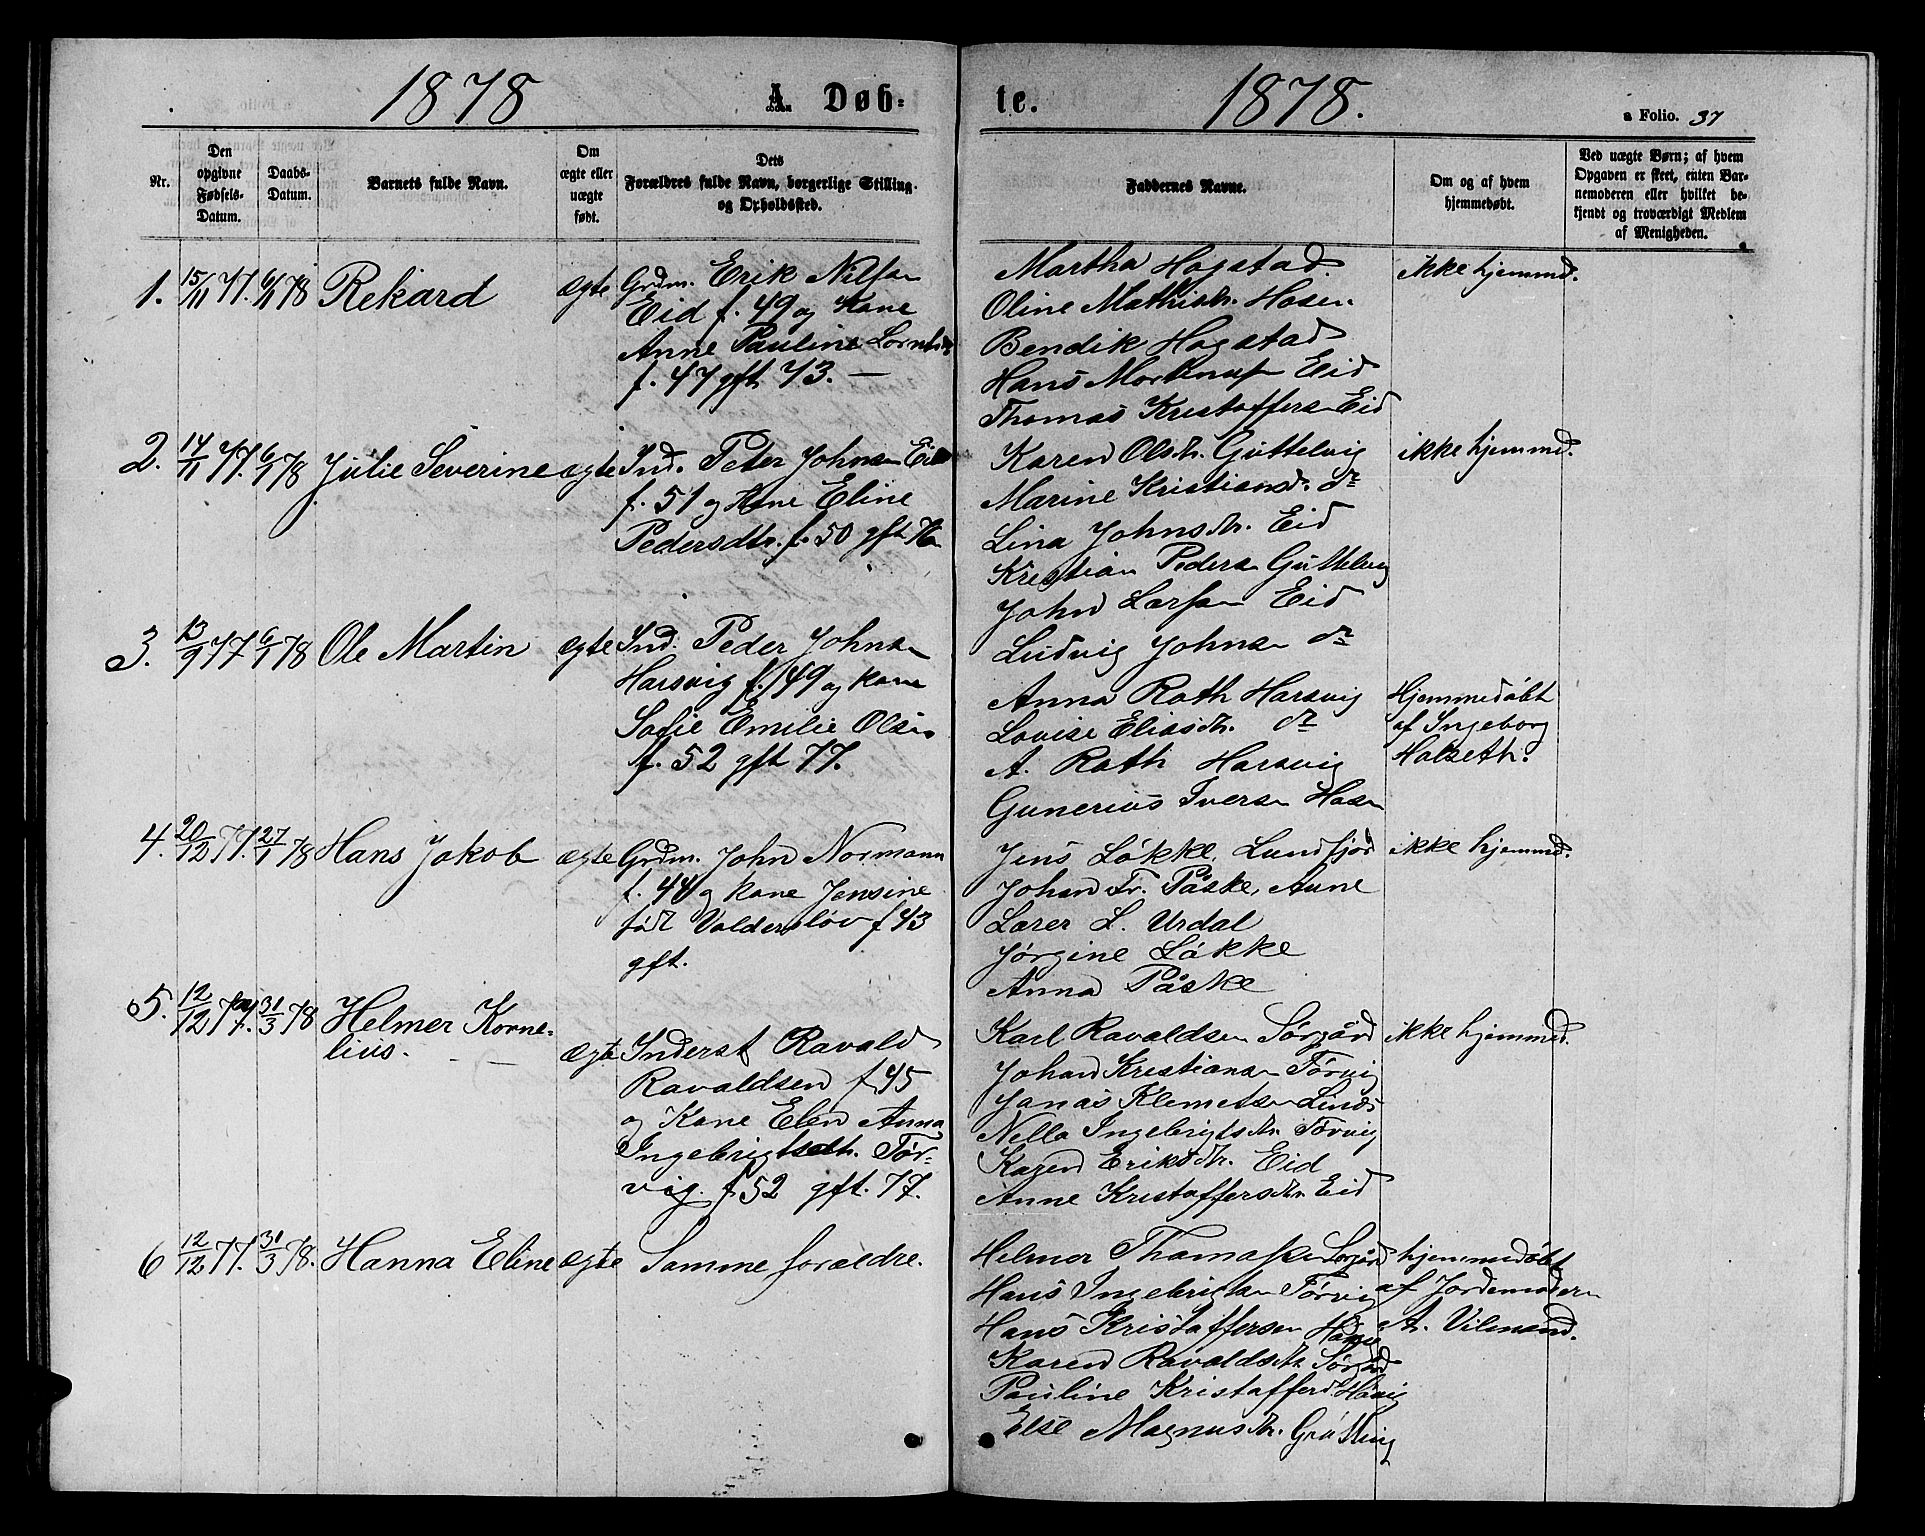 1878
A. Døb-
te.
1878.
a Folio. 37
Nr.
Den
opgivne
Fødsels-
Datum.
Daabs-
Datum.
Barnets fulde Navn.
Om
ægte eller
uægte
født.
Dets
Forældres fulde Navn, borgerlige Stilling
og Opholdssted.
Faddernes Navne.
Om og af hvem
hjemmedøbt.
Ved uægte Børn; af hvem
Opgaven er skeet, enten Bar-
nemoderen eller hvilket be-
kjendt og troværdigt Medlem
af Menigheden.
1. 15/11 77. 6/1 78 Rekard ægte Grdm. Erik Nilsen
Eid f. 49 og Kone
Anne Pauline
f. 47 gft 73. —
Martha Hogstad.
Oline Mathisdtr. Hosen
Bendik Hogstad
Hans Eid
Thomas Kristoffersen Eid
ikke hjemmd.
2. 14/11 77. 6/1 78 Julie Severine ægte Ind. Peter Johnsen Eid
f. 51 og Kone Eline
Pedersdtr. f. 50 gft
Karen Olsdtr. Guttelvig
Marine Kristiansd. do
Lina Johnsdtr. Eid
Kristian Pedersen Guttelvig
John Larsen Eid
Ludvig Johnsen do
ikke hjemmd.
3. 13/9 77 6/1 78 Ole Martin ægte Ind. Peder Johnsen
Harsvig f. 49 og kone
Sofie Emilie Olsen
f. 52 gft 77.
Anna Roth Harsvig
Lovise Eliasdtr. do
A. Roth Harsvig
Gunerius Iversen Hosen
Hjemmedøbt
af Ingeborg
Holseth.
4. 20/12 77. 27/1 78 Hans Jakob ægte Grdm. John Normann
f. 44 og kone Jensine
født Volderslöv f 43
gft.
Jens Løkke, Lundfjord
Johan Fr. Påske, Aune
Lærer L. Urdal
Jørgine Løkke
Anna Påske
ikke hjemmd.
5. 12/12 77. 31/3 78 Helmer Korne-
lius.
ægte Inderst Ravald
Ravaldsen f 45
og Kone Elen Anna
Ingebrigtsdtr. Tør-
vig. f 52 gft. 77.
Karl Ravaldsen Sørgård
Johan Kristiansen Tørvig
Jonas Klemetsen Linds
Nella Ingebrigtsdtr. Tørvig
Karen Eriksdtr. Eid
Anne Kristoffersdtr. Eid
ikke hjemmd.
6 12/12 77. 31/3 78. Hanna Eline ægte Samme forældre.
Helmer Thomassen Sørgård
Hans Ingebrigtsen Tørvig
Hans Kristoffersen
Karen Ravaldsdtr Sørgård
Pauline Kristoffersd.
Else Magnusdtr.
hjemmedøbt
af Jordemoderen
A. Vilmand.